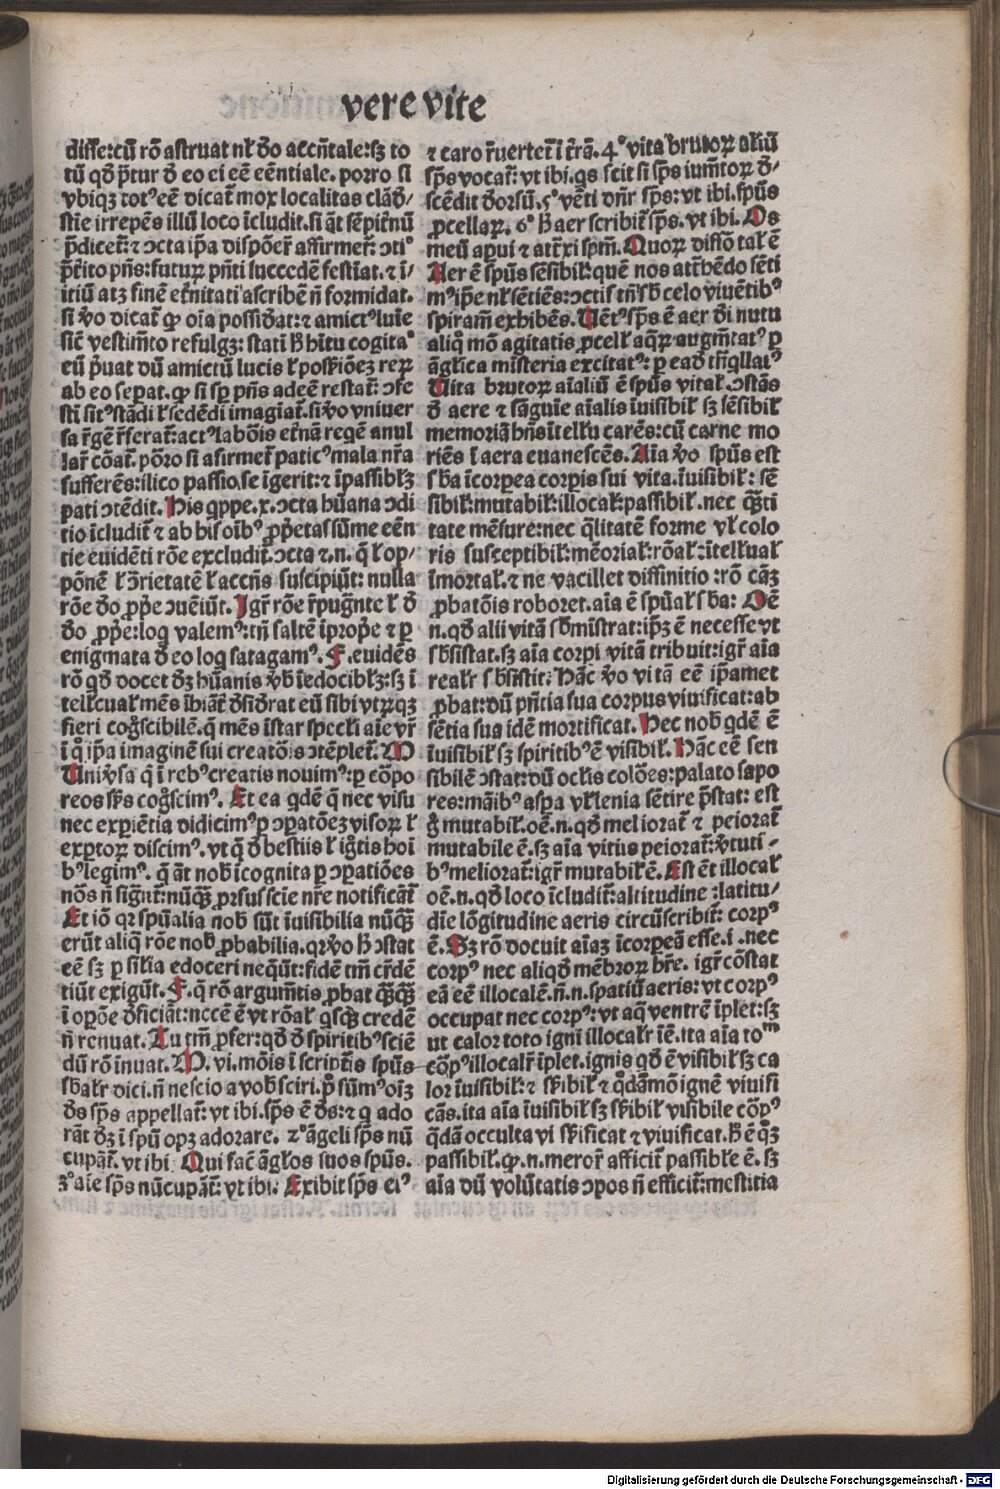 vere vite
disse:cū rō astruat nł ðo accñtale:sꝫ to
tū qð p̄tur ð eo ei eē eēntiale. porro si
vbiqꝫ totꝰ eē dicat̄ mox localitas clāð/
stīe irrepēs illū loco īcludit. si āt sēpit̄nū
p̄dicet̄: ⁊ ↄcta ip̄a dispōer̄ affirmer̄: ↄtiº
p̄t̄ito pn̄s: futuꝝ pn̄ti succedē festīat. ⁊ ī/
itiū atqꝫ finē et̄nitati ascribē n̄ formidat.
si ꝟo dicat̄ ꝙ oīa possiðat: ⁊ amictꝰ luīe
sic̄ vestim̄to refulgꝫ: stati ꝉꝫ hītu cogita
eū p̄uat dū amictū lucis ł possk̄iōeꝫ reꝝ
ab eo sepat. ꝙ si sꝑ pn̄s adeē restat̄: ↄse
sti sitꝰ stādi ł sedēdi imagiat̄. si ꝟo vniuer
sa r̄gē r̄ferat̄: actꝰ labōis et̄nā regē anul
lar̄ cōat̄. pōro si asirmet̄ paticꝰ mala nr̄a
sufferēs: ilico passio se īgerit: ⁊ īpassibłꝫ
pati ↄtēdit. His qppe.x.ↄcta hūana ↄdi
tio īcludit̄ ⁊ ab his oībꝰ ꝓp̄etas sūme eēn
tie euidēti rōe excludit̄. ↄcta ⁊.n. q̄ ł op/
pōnē ł ↄ̄rietatē ł accn̄s suscipiūt: nulla
rōe ðo ꝓp̄e ↄueiūt. Igr̄ rōe r̄pug̃nte ł ð
ðo ꝓp̄e: loq valemꝰ: tn̄ saltē īprop̄e ⁊ ꝑ
enigmata ð eo loq satagamꝰ. F. euidēs
rō qð docet ðꝫ hūanis ꝟb̄ īedocibłꝫ: sꝫ ī
tellcual̄ mēs ībiat̄ ðsiðrat eū sibi vtꝝqꝫ
fieri cog̊scibilē. q̄ mēs īstar specłi aīe vr̄
ī q̄ ip̄a imaginē sui creatōis ↄtēplet̄. M
Vniꝟsa q̄ ī rebꝰ creatis nouimꝰ: ꝑ cōpo
reos sk̄s cog̊scimꝰ. Et ea qdē q̄ nec visu
nec expiētia didicimꝰ ꝑ ↄꝑatōeꝫ visoꝝ ł
exꝑtoꝝ discimꝰ. vt q̄ ð bestiis ł ig̊tis hoī
bꝰ legimꝰ. q̄ āt nob̄ īcognita ꝑ ↄꝑatiōes
nōs n̄ sig̃nt̄: nūqꝗ̄ ꝓrsus scīe nr̄e notificāt̄
Et iō qꝛ spūalia nob̄ sūt īuisibilia nūqꝗ̄
erūt aliq̄ rōe nob̄ ꝓbabilia. qꝛ ꝟo ꝉꝫ ↄstat
eē sꝫ ꝑ silia edoceri neqūt: fidē tm̄ cr̄dē
tiūt exigūt. F. q̄ rō argum̄tis ꝓbat qꝗ̄qꝗ̄
ī opōe ðficiāt̄: nccē ē vt rōał qsqꝫ credē
n̄ renuat. Tu tm̄ ꝓfer: qð ð spiritibꝰ sciē
dū rō īnuat. M. vi. mōis ī script̄is spūs
sb̄ałr dici. n̄ nescio a vob̄ sciri. p̊ sūmꝰ oīꝫ
ðs sp̄s appellat̄: vt ibi. sp̄s ē ðs: ⁊ q ado
rāt ðꝫ ī spū opꝫ adorare. 2º āgeli sp̄s nū
cupāt̄. vt ibi Qui fac̄ āg̃los suos spūs.
3º aīe sp̄s nūcupāt̄: vt ibi. Exibit sp̄s eiꝰ
⁊ caro r̄uertet̄ ī t̄rā. 4º vita brutoꝝ aīliū
sp̄s vocat̄: vt ibi. qs scit si sp̄s ium̄toꝝ ð/
scēdit ðorsū. 5º vēti dn̄r sp̄s: vt ibi. spūs
ꝓcellaꝝ. 6º ꝉꝫ aer scribit̄ sp̄s. vt ibi. Os
meū apui ⁊ att̄xi spm̄. Quoꝝ diffō tał ē
Aer ē spūs sēsibił: quē nos atr̄hēdo sēti
mꝰ ip̄e nł sētiēs: ↄctis tn̄ sb̄ celo viuētibꝰ
spiram̄ exhibēs. Vētꝰ sp̄s ē aer ði nutu
aliq̄ mō agitatis ꝓcełł aqꝝ augm̄tatꝰ ꝑ
āg̃lica misteria excitatꝰ: ꝑ eað tn̄qllatꝰ
Vita brutoꝝ aīaliū ē spūs vitał. ↄstās
ð aere ⁊ sāguīe aīalis īuisibił sꝫ sēsibił
memoriā hn̄s ītełłu carēs: cū carne mo
riēs ī aera euanescēs. Aīa ꝟo spūs est
sb̄a īcorpea corpis sui vita. īuisibił: sē
sibił: mutabił: illocał: passibił. nec qꝗ̄ti
tate mēsure: nec q̄litatē forme vł colo
ris susceptibił: mēoriał: rōał: ītełłuał
īmōrtał. ⁊ ne vacillet diffinitio: rō cāꝫ
ꝓbatōis roboret. aīa ē spūał sb̄a: Oē
n. qð alii vitā sb̄mīstrat: ip̄ꝫ ē necesse vt
sb̄sistat. sꝫ aīa corpi vitā tribuit: igr̄ aīa
realr̄ sb̄sistit: Hāc ꝟo vitā eē ip̄amet
ꝓbat: dū pn̄tia sua corpus viuificat: ab
sētia sua idē mortificat. Hec nob̄ qdē ē
īuisibił sꝫ spiritibꝰ ē visibił. Hāc eē sen
sibilē ↄstat: dū oclis colōes: palato sapo
res: māibꝰ aspa vł lenia sētire p̄stat: est
g̊ mutabił. oē. n. qð meliorat̄ ⁊ peiorat̄
mutabile ē. sꝫ aīa vitiis peiorat̄: ꝟtuti-
bꝰ meliorat̄: igr̄ mutabił ē. Est ēt illocał
oē. n. qð loco īcludit̄: altitudine: latitu/
dīe lōgitudine aeris circūscribit̄: corpꝰ
ē. Sꝫ rō docuit aīaꝫ īcorpeā esse. i. nec
corpꝰ nec aliqð mēbroꝝ hr̄e. igr̄ cōstat
eā eē illocalē. n̄. n. spatiū aeris: vt corpꝰ
occupat nec corpꝰ: vt aq̄ ventrē īplet: sꝫ
ut calor toto igni illocałr īē. ita aīa tom̄
cōpꝰ illocałr īplet. ignis qð ē visibił sꝫ ca
lor īuisibił: ⁊ sk̄ibił ⁊ q̊dāmō ignē viuisi
cās. ita aīa īuisibił sꝫ sk̄ibił visibile cōpꝰ
q̄dā occulta vi sk̄ificat ⁊ viuificat. ꝉꝫ ē qꝫ
passibił. ꝙ. n. meror̄ afficit̄ passible ē. sꝫ
aīa dū volūtatis ↄpos n̄ efficit̄: mestitia
Digitalisierung gefördert durch die Deutsche Forschungsgemeinschaft - DFG